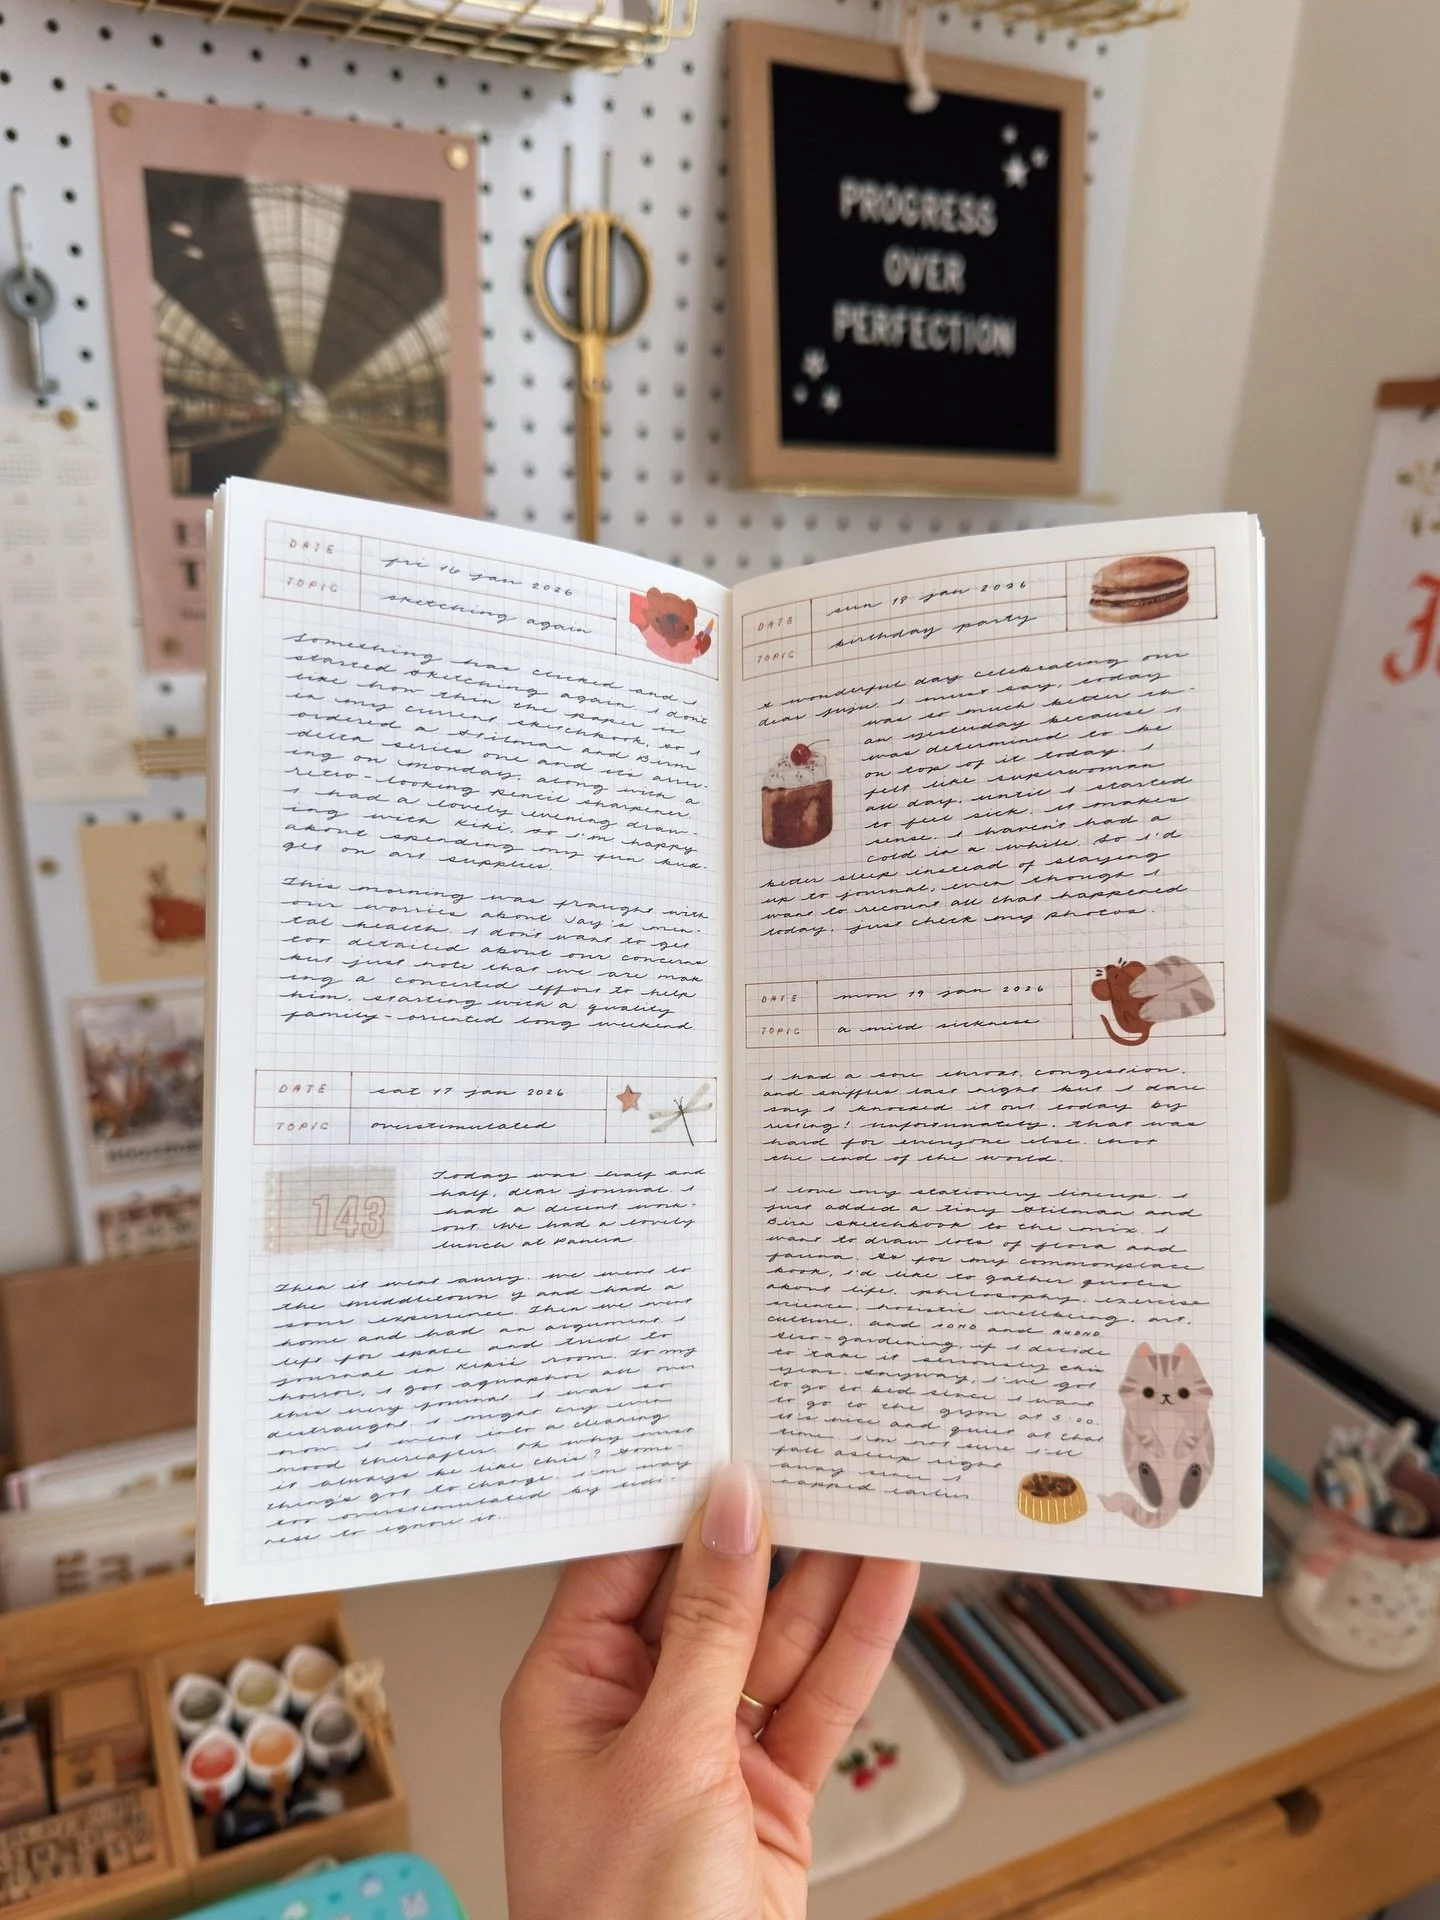 PROGRESS
OVER
PERFECTION
DATE
fri 16 jan 2026
TOPIC
sketching again
Something has clicked and I
started sketching again. I don't
like how thin the paper is
in my current sketchbook, so I
ordered a Stilman and Birn
delta series one and it's arriv-
ing on monday, along with a
retro-looking pencil sharpener.
I had a lovely evening draw-
ing with Kiki, so I'm happy
about spending my fun bud-
get on art supplies.
This morning was fraught with
our worries about Jay's men-
tal health. I don't want to get
too detailed about our concerns
but just note that we are mak
ing a concerted effort to help
him, starting with a quality
family-oriented long weekend.
DATE
sat 17 jan 2026
TOPIC
overstimulated
143
Today was half and
half, dear journal. I
had a decent work-
out. We had a lovely
lunch at Panera.
Then it went awry. we went to
the middletown y and had a
sour experience. Then we went
home and had an argument. I
left for space and tried to
journal in Kiki's room. To my
horror, I got aquaphor all over
this very journal. I was so
distraught I might cry even
now. I went into a cleaning
mood thereafter. Oh why must
it always be like this? Some-
thing's got to change. I'm way
too overstimulated by
ness to ignore it.
DATE
sun 19 jan 2026
TOPIC
birthday party
A wonderful day celebrating our
dear Juju. I must say, today
was so much better th-
an yesterday because I
was determined to be
on top of it today. I
felt like superwoman
all day, until I started
to feel sick. It makes
sense. I haven't had a
cold in a while. So I'd
better sleep instead of staying
up to journal, even though I
want to recount all that happened
today. Just check my photos.
DATE
mon 19 jan 2026
TOPIC
a mild sickness
I had a sore throat, congestion,
and sniffles last night but I dare
say I knocked it out today by
resting! Unfortunately, that was
hard for everyone else. Not
the end of the world.
I love my stationery lineup. I
just added a tiny Stilman and
Birn sketchbook to the mix. I
want to draw lots of flora and
fauna. As for my commonplace
book, I'd like to gather quotes
about life, philosophy, exercise
science, holistic wellbeing, art,
culture, and SDMD and AHDMD.
Also-gardening, if I decide
to take it seriously this
year. Anyway, I've got
to go to bed since I want
to go to the gym at 5:00.
It's nice and quiet at that
time. I'm not sure I'll
fall asleep right
away since I
napped earlier.